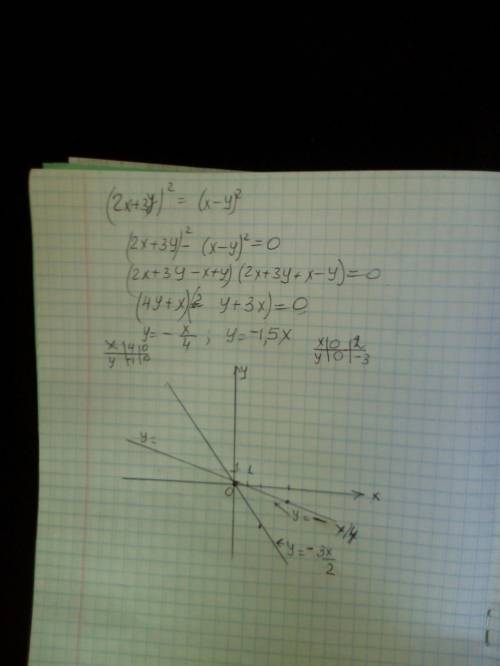 (2x+3y)² = (x-y)²
(2x+3y)² - (x-y)² = 0
(2x+3y-x+y)(2x+3y+x-y)=0
(4y+x)(2y+3x)=0
y= - x/4 ; y=-1,5x
x | 4 | 0
y | -1 | 0
x | 0 | 2
y | 0 | -3
y
y=
1 1
0
x
y= - x/4
y= - 3x/2